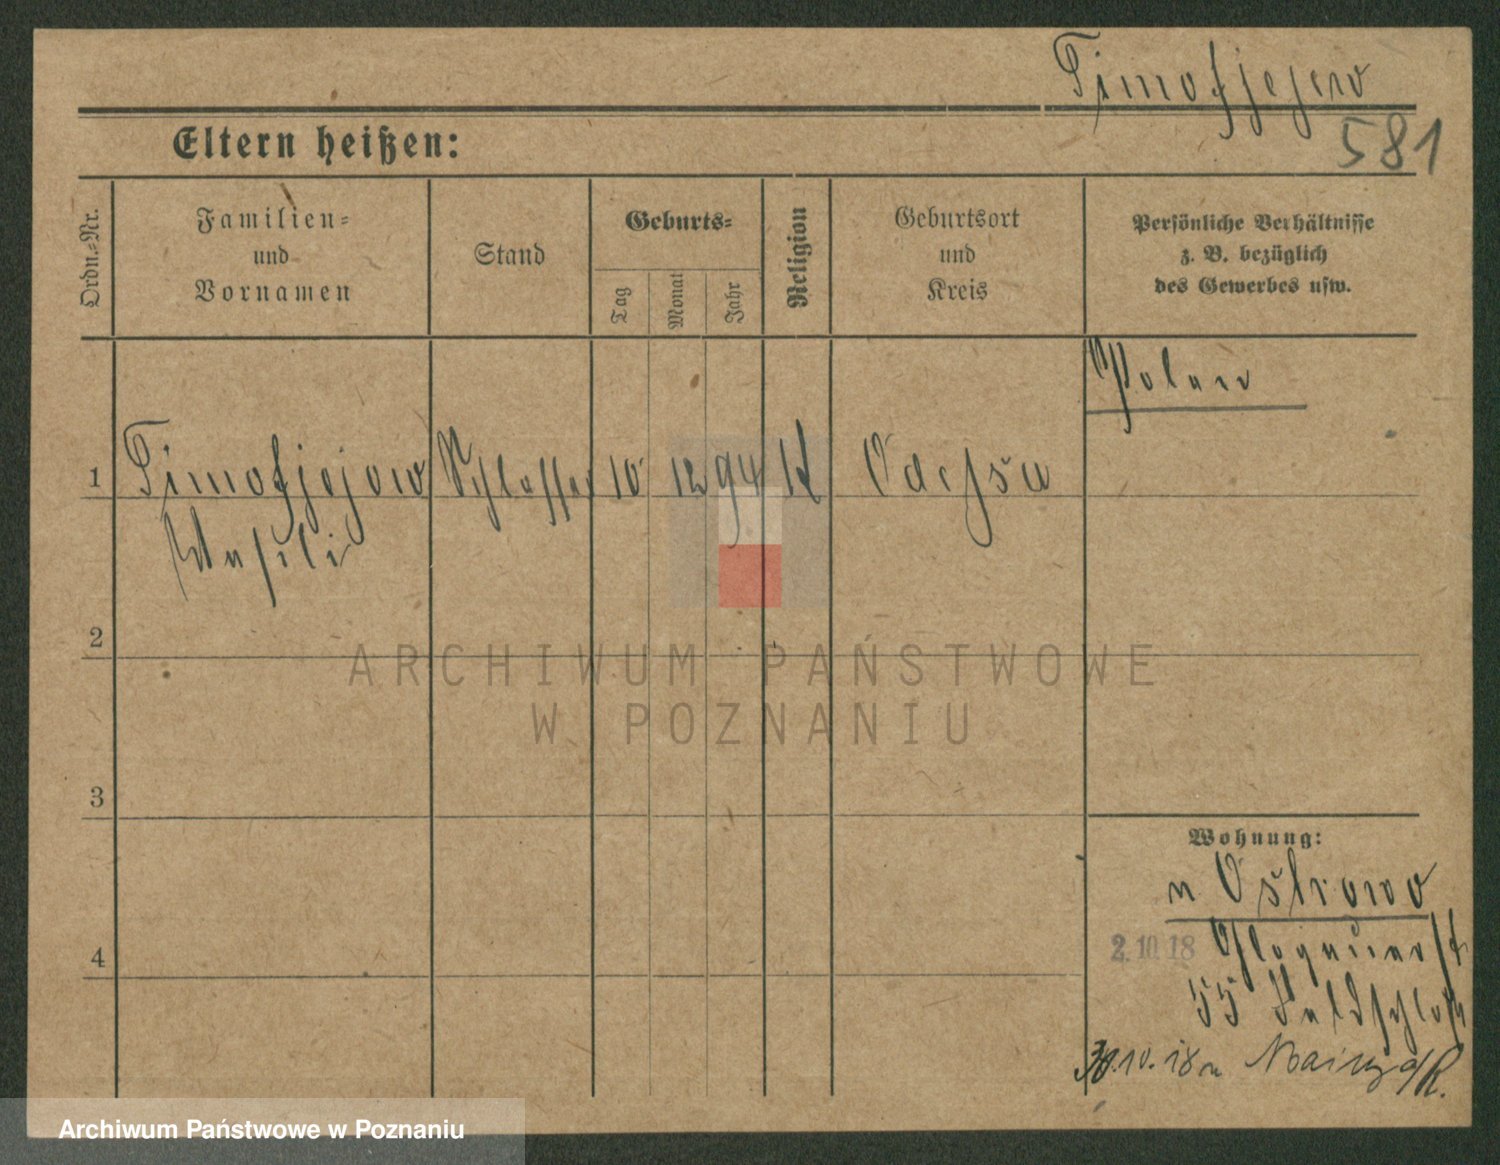 Timofjejew
581
Eltern heißen:
Ordn.-Nr.
Familien-
und
Vornamen
Stand
Geburts-
Tag
Monat
Jahr
Religion
Geburtsort
und
Kreis
Persönliche Verhältnisse
z. B. bezüglich
des Gewerbes usw.
Polen
1 Timofjejow Schlosser 10 12 94 K Odessa
Wasili
2
ARCHIWUM PAŃSTWOWE
W POZNANIU
3
Wohnung:
n Ostrowo
4
2.10.18 Glogauerst
55 Feldschloß
30.10.18 n Mainz a/R.
Archiwum Państwowe w Poznaniu